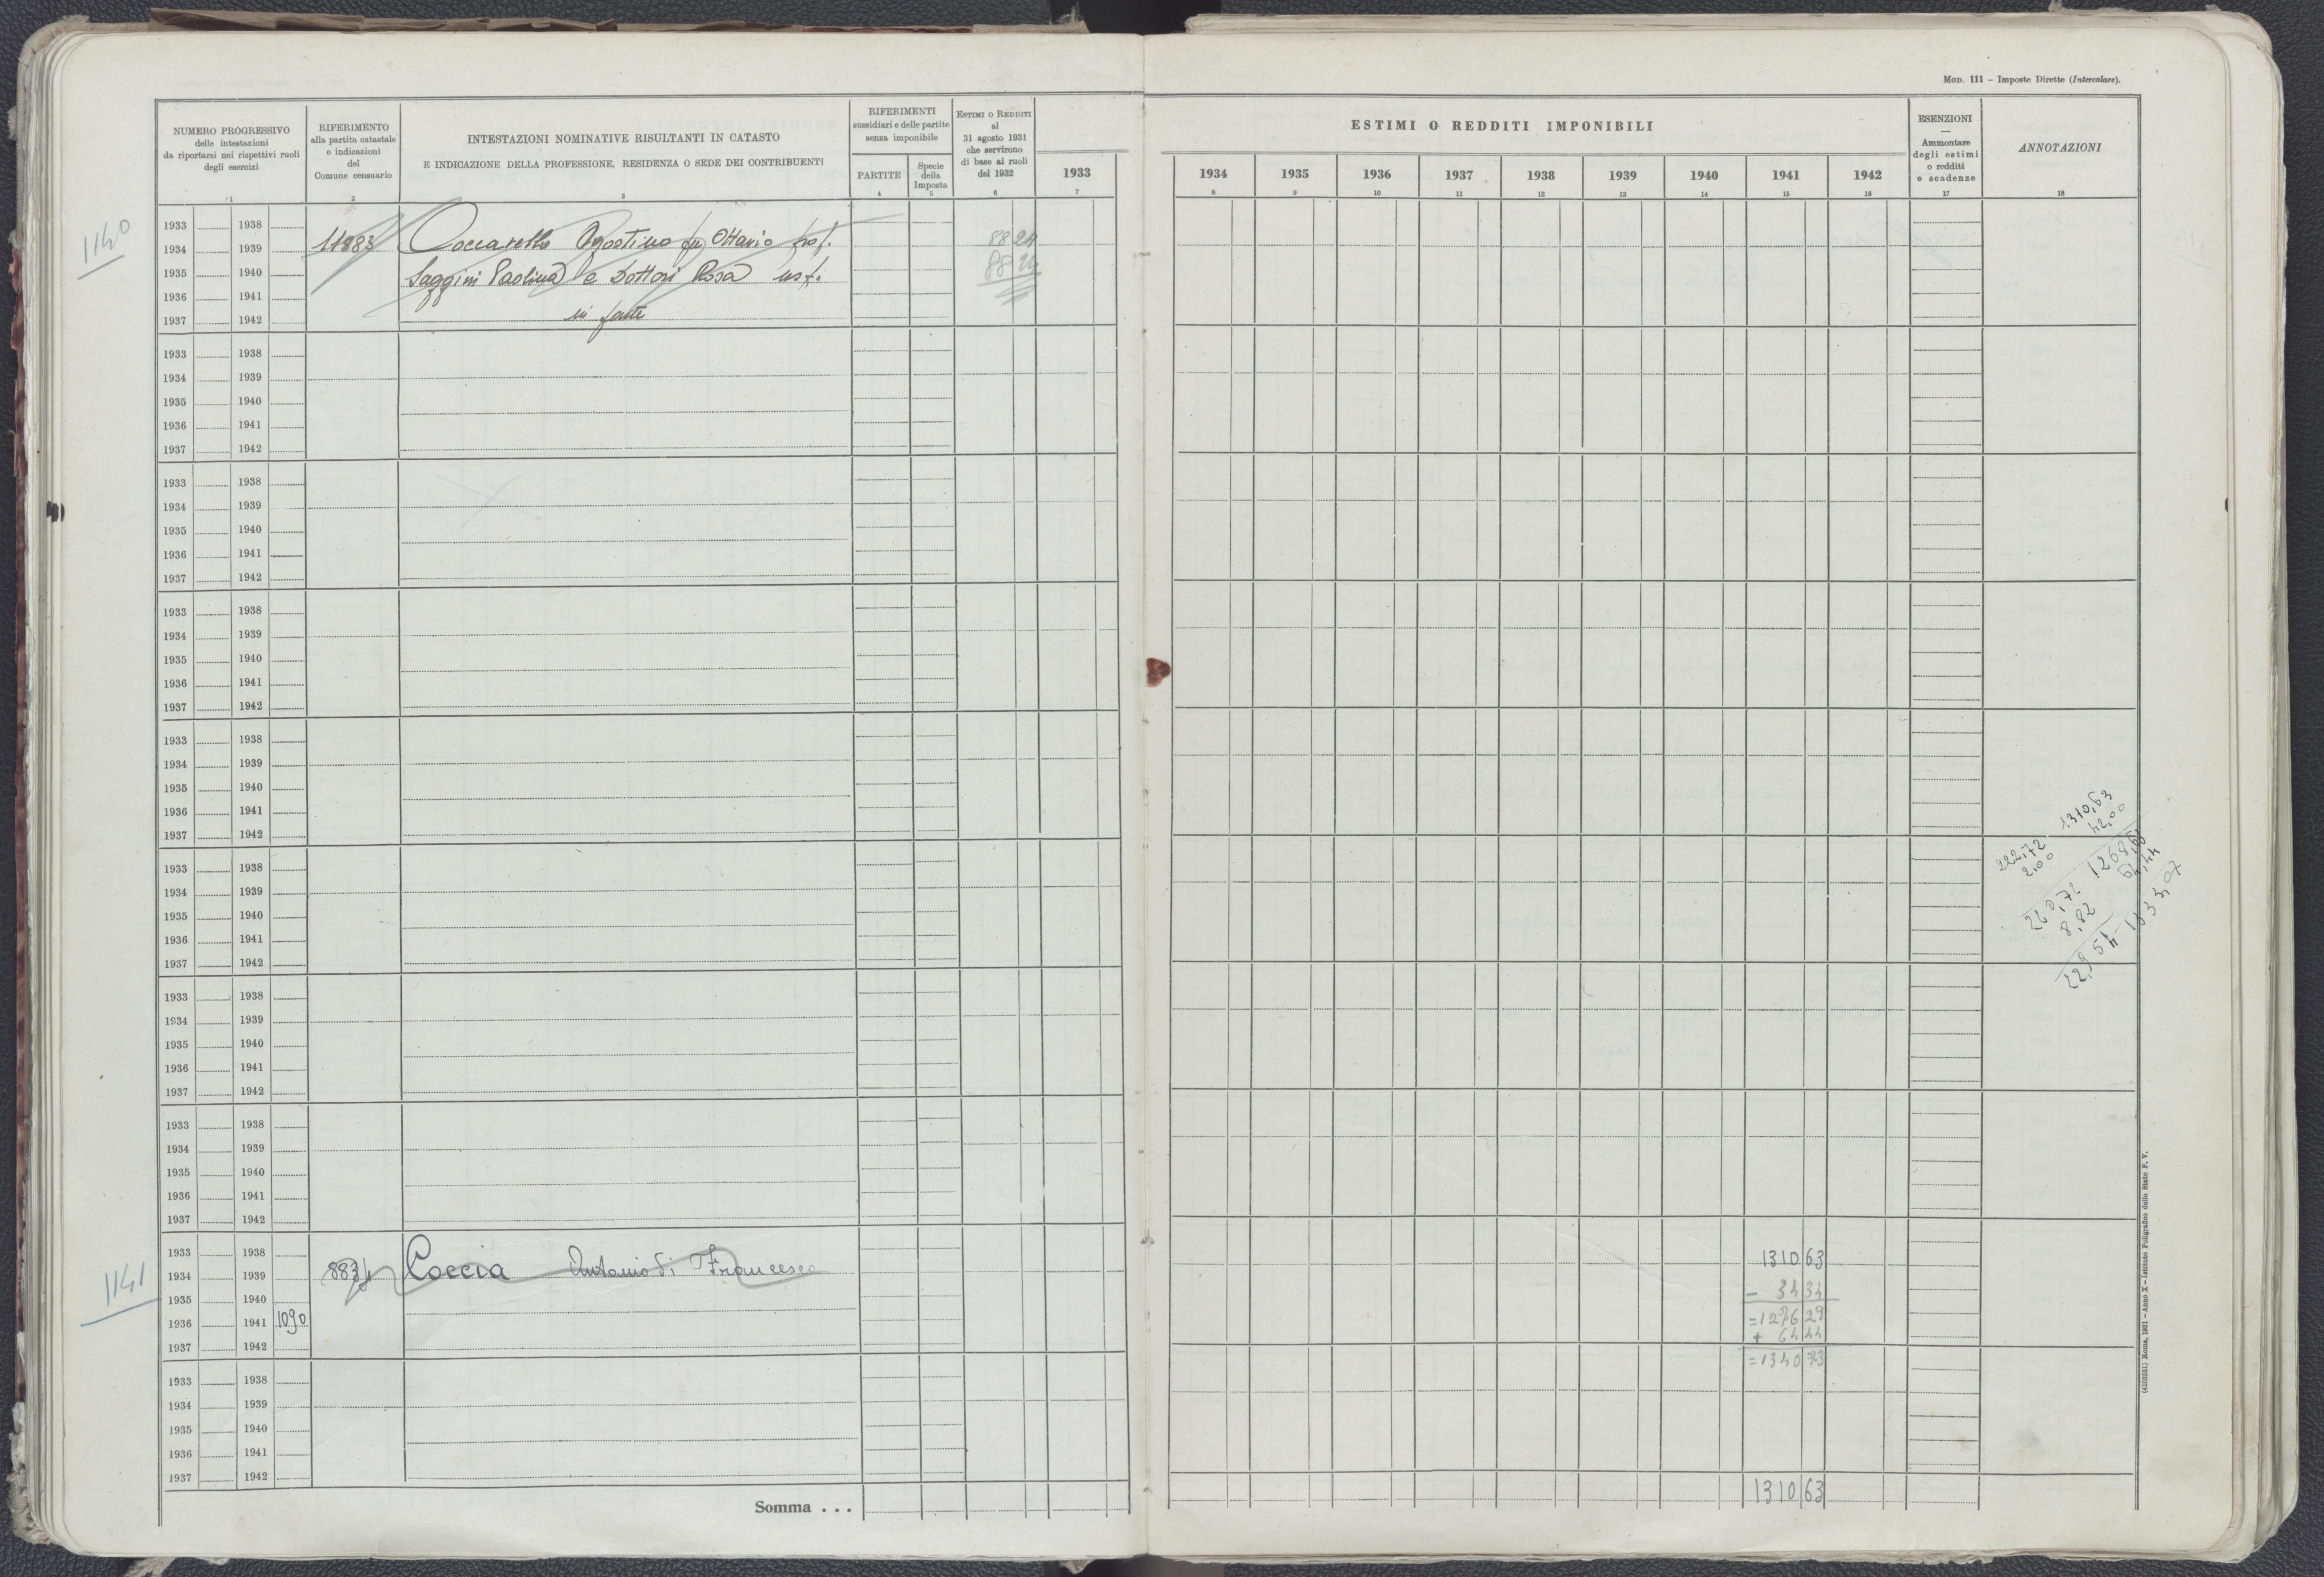 MOD. 111 – Imposte Dirette (Intercalare).
NUMERO PROGRESSIVO
delle intestazioni
da riportarsi nei rispettivi ruoli
degli esercizi
1
RIFERIMENTO
alla partita catastale
e indicazioni
del
Comune censuario
2
INTESTAZIONI NOMINATIVE RISULTANTI IN CATASTO
E INDICAZIONE DELLA PROFESSIONE, RESIDENZA O SEDE DEI CONTRIBUENTI
3
RIFERIMENTI
sussidiari e delle partite
senza imponibile
PARTITE
4
Specie
della
Imposta
5
ESTIMI O REDDITI
al
31 agosto 1931
che servirono
di base ai ruoli
del 1932
6
1933
7
ESTIMI O REDDITI IMPONIBILI
1934 1935 1936 1937 1938 1939 1940 1941 1942
8 9 10 11 12 13 14 15 16
ESENZIONI
—
Ammontare
degli estimi
o redditi
e scadenze
17
ANNOTAZIONI
18
1140
1933 1938
1934 1939 11883 Coccarello Agostino fu Ottavio prof. 88 24
1935 1940 Saggini Paolina e Dottori Rosa usf. 88 24
1936 1941
1937 1942 in parte
1933 1938
1934 1939
1935 1940
1936 1941
1937 1942
1933 1938
1934 1939
1935 1940
1936 1941
1937 1942
1933 1938
1934 1939
1935 1940
1936 1941
1937 1942
1933 1938
1934 1939
1935 1940
1936 1941
1937 1942
1310,63
42,00
1268,63
64,44
1333,07
222,72
2,00
220,72
8,82
229,54
1933 1938
1934 1939
1935 1940
1936 1941
1937 1942
1933 1938
1934 1939
1935 1940
1936 1941
1937 1942
1933 1938
1934 1939
1935 1940
1936 1941
1937 1942
1141
1933 1938 1310 63
1934 1939 Coccia Antonio di Francesco
1935 1940 – 34 34
1936 1941 1090 = 1276 29
+ 64 44
1937 1942 = 1340 73
1933 1938
1934 1939
1935 1940
1936 1941
1937 1942
Somma . . . 1310 63
(4103531) Roma, 1931 – Anno X – Istituto Poligrafico dello Stato P. V.